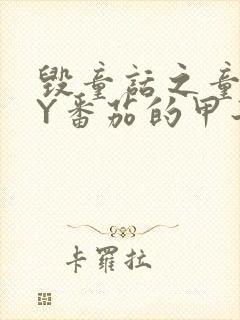 毁童话之童
Y番茄的甲
卡罗拉